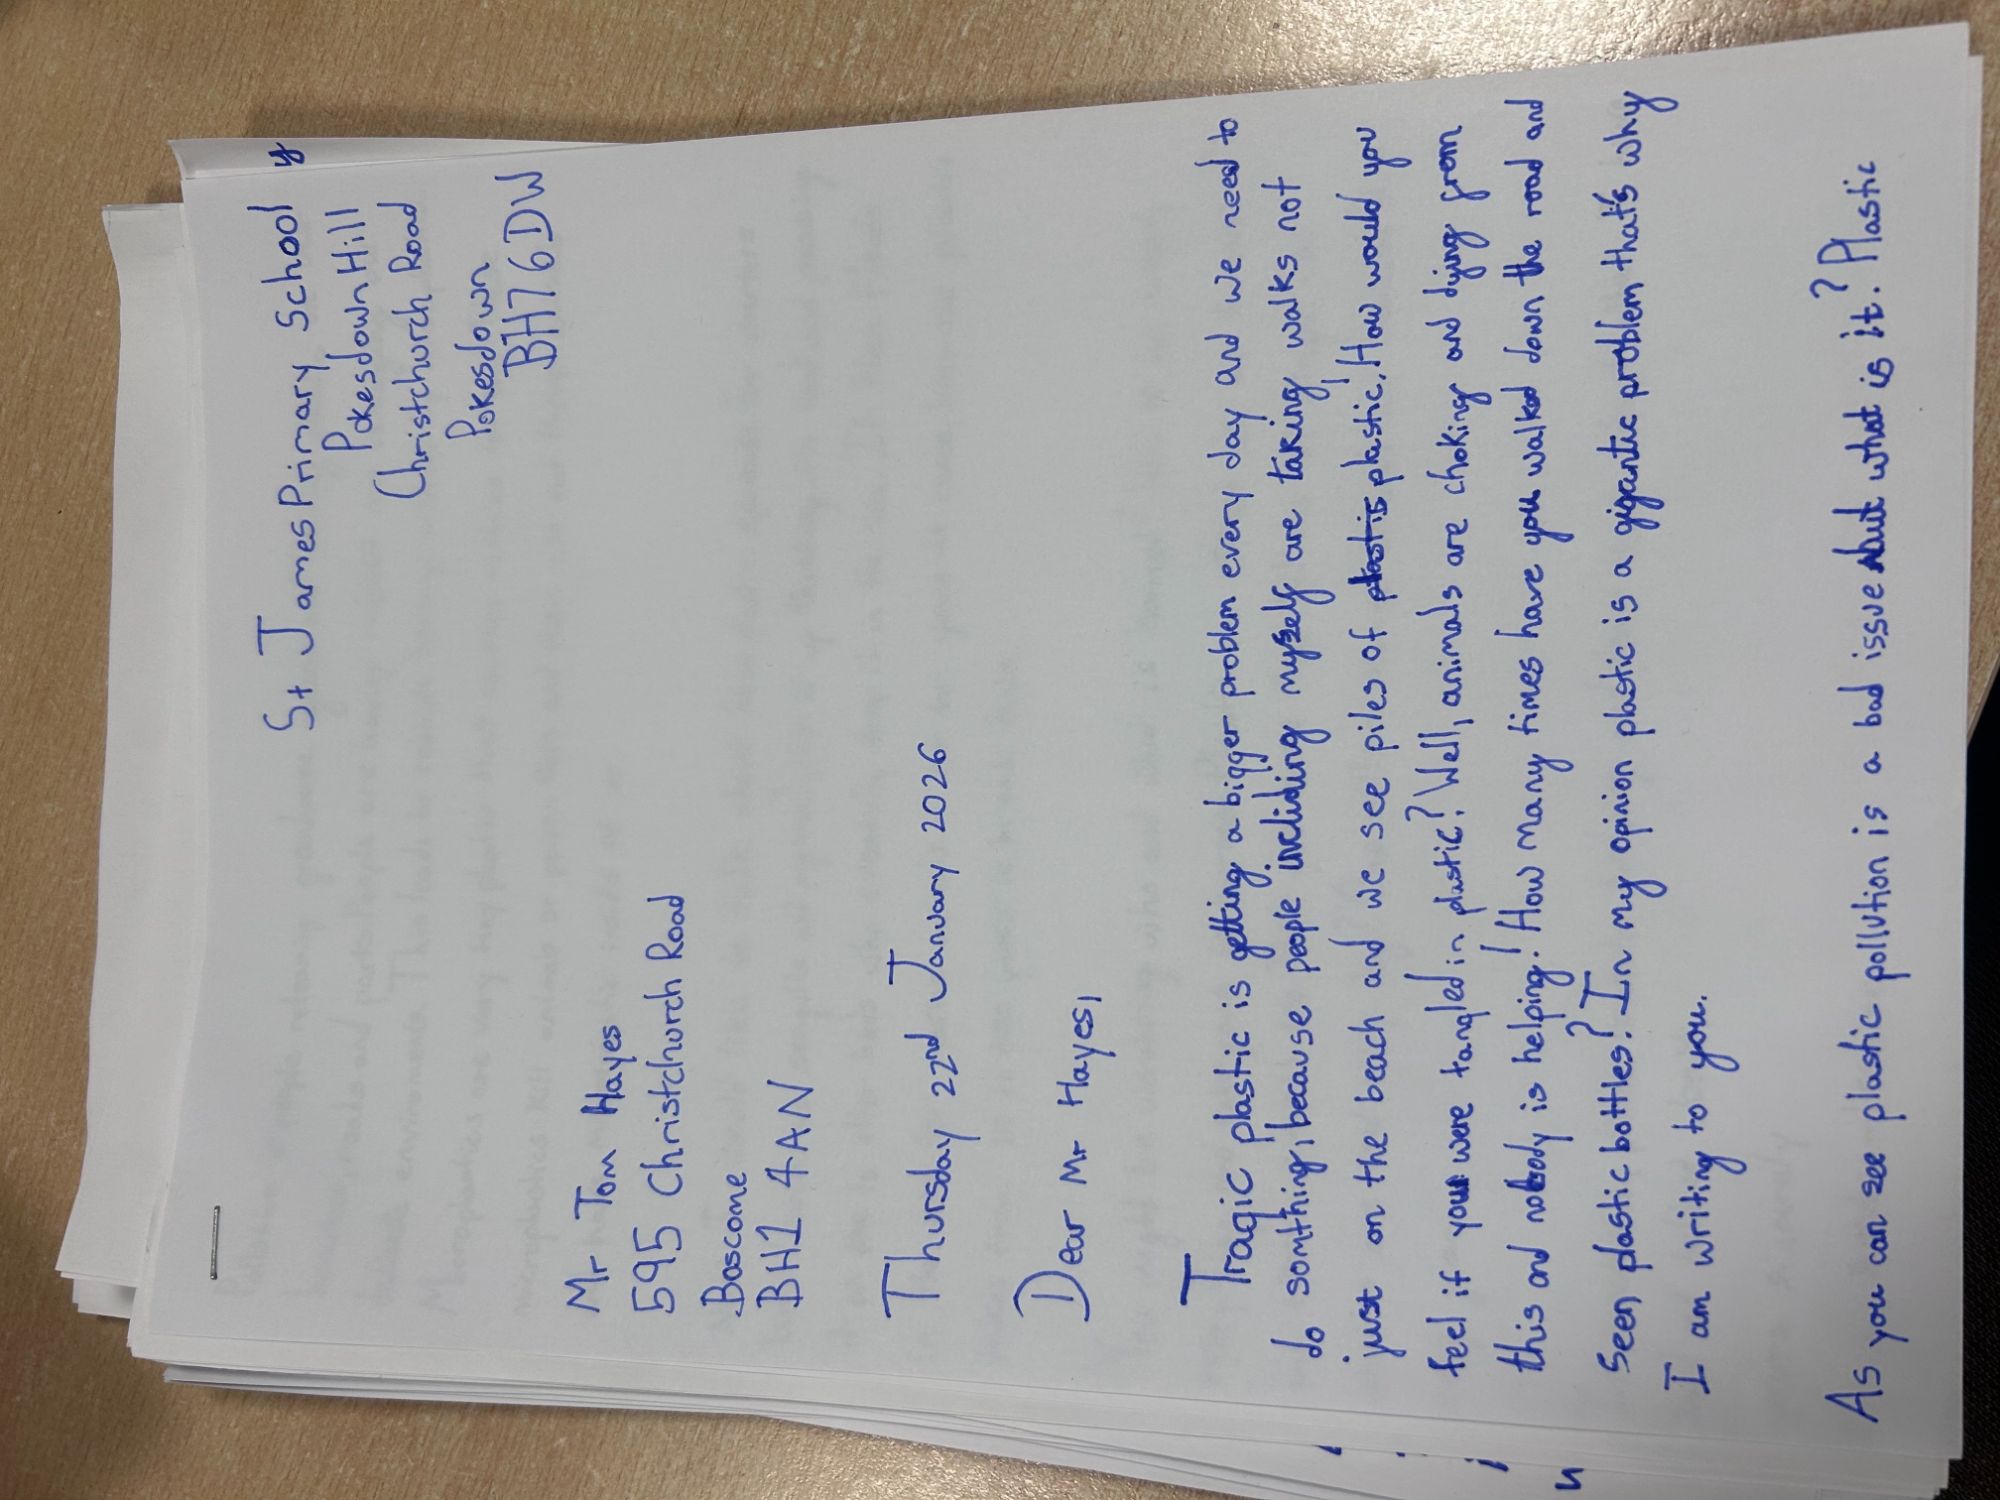 St James Primary School
Pokesdown Hill
Christchurch Road
Pokesdown
BH7 6DW
Mr Tom Hayes
595 Christchurch Road
Boscome
BH1 4AN
Thursday 22nd January 2026
Dear Mr Hayes,
Tragic plastic is getting a bigger problem every day and we need to
do somthing, because people incliding myself are taking walks not
just on the beach and we see piles of plastis plastic! How would you
feel if you were tangled in plastic? Well, animals are choking and dying from
this and nobody is helping! How many times have you walked down the road and
seen plastic bottles? In my opinion plastic is a gigantic problem that's why
I am writing to you.
As you can see plastic pollution is a bad issue but what is it? Plastic